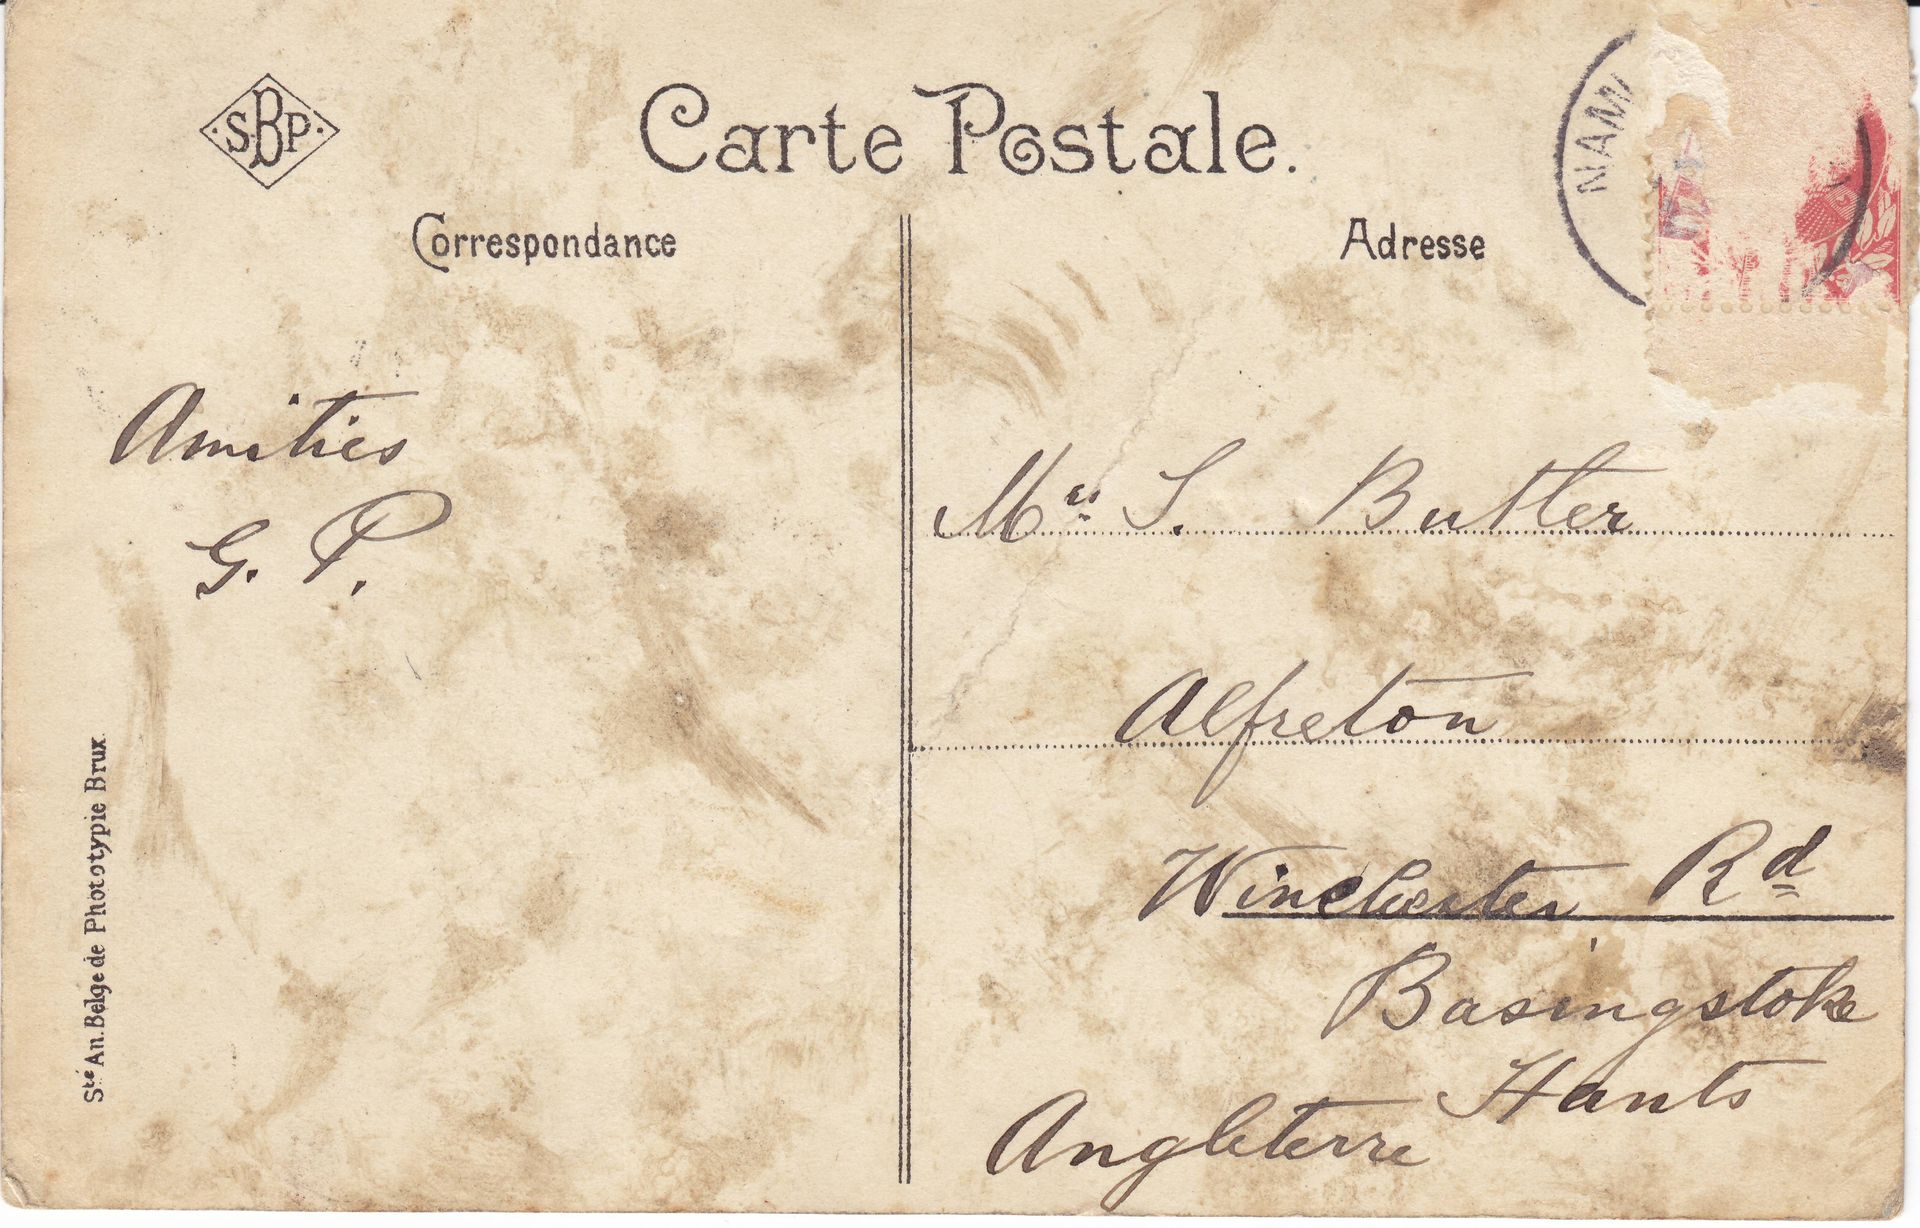 SBP
Carte Postale.
Correspondance
Adresse
NAM
Amitiés
G. P.
Mrs S. Butler
Alfreton
Winchester Rd
Basingstoke
Hants
Angleterre
Sté An. Belge de Phototypie Brux.